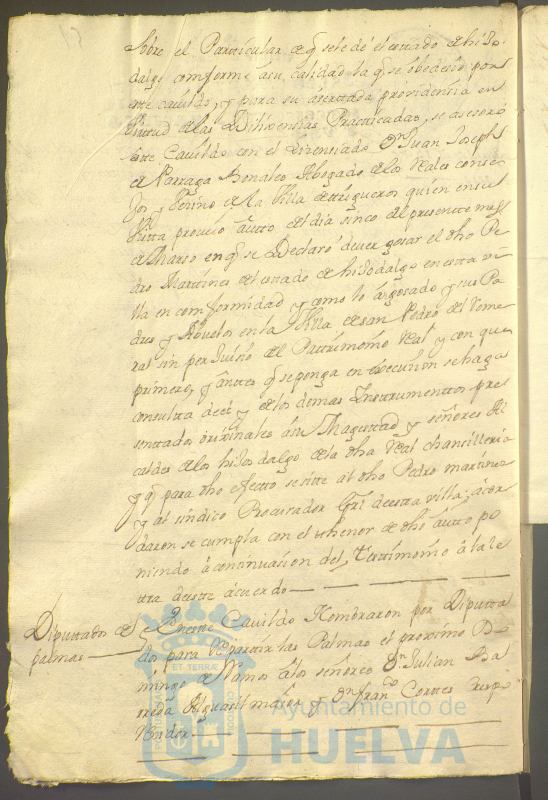 Sobre el Particular de q sele dé el estado de hijo
dalgo comforme asu calidad la q se obedecio por
este cavildo, y para su asertada providencia en
virtud de las Dilixensias Practicadas, se asesoró
este Cavildo con el Lizensiado Dn Juan Joseph
de Narraga Bonaleo Abogado de los Reales conse
jos y Vesino de la Villa de trigueros quien en su
vistta proveió autto el dia sinco del presente mes
de Marso en q se Declaró dever gosar el dho Pe
dro Martines el estado de hijodalgo en esta vi
lla en comformidad y como lo an gosado sus Pa
dres y Abuelos en la Villa de san Pedro del Rome
ral sin perjuisio del Pattrimonio Real y con que
primero, y antes q se ponga en execusion se haga
consultta de él y de los demas Instrumenttos pre
senttados orixinales a su Magesttad y señores Al
caldes de los hijosdalgo de la dha Real chansilleria
y q para dho efectto se sitte al dho Pedro martines
y al sindico Procurador Grl de esta villa; acor
daron se cumpla con el thenor de dho autto po
niendo a continuasion del testtimonio a la le
ttra deeste acuerdo
Diputtados de
palmas
En este Cavildo Nombraron por Diputta
dos para Repartir las Palmas el proximo Do
mingo de Ramos a los señores Dn Julian Ba
rreda Alguasil maior y Dn Franco Cortes Rexi
dor
PORTUS MARIS
ET TERRAE
CUSTODIA
Ayuntamiento de
HUELVA